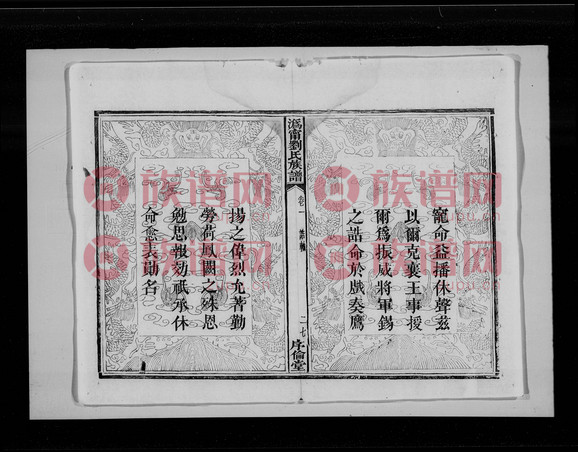 寵命益播休聲茲
以爾克襄王事援
爾爲振威將軍錫
之誥命於戲奏鷹
溈甯劉氏族譜
卷一 誥軸
二七
序倫堂
揚之偉烈允著勤
勞荷鳳闕之殊恩
勉思報効祇承休
命愈表勛名
族谱网
族谱网
族谱网
族谱网